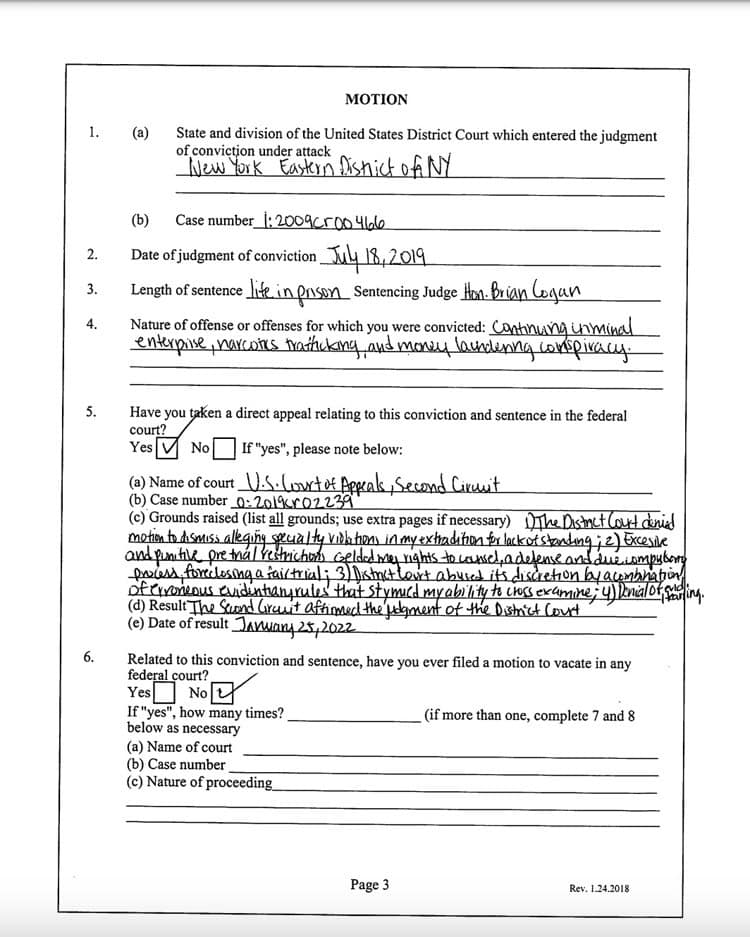 MOTION
1. (a) State and division of the United States District Court which entered the judgment
of conviction under attack
New York Eastern District of NY
(b) Case number 1:2009cr00466
2. Date of judgment of conviction July 18, 2019
3. Length of sentence life in prison Sentencing Judge Hon. Brian Cogan
4. Nature of offense or offenses for which you were convicted: Continuing criminal
enterprise, narcotics trafficking, and money laundering conspiracy.
5. Have you taken a direct appeal relating to this conviction and sentence in the federal
court?
Yes No If "yes", please note below:
(a) Name of court U.S. Court of Appeals, Second Circuit
(b) Case number 0:2019cr02239
(c) Grounds raised (list all grounds; use extra pages if necessary) 1) The District Court denied
motion to dismiss alleging specialty violations in my extradition for lack of standing; 2) Excessive
and punitive pretrial restrictions gelded my rights to counsel, a defense and due compulsory
process, foreclosing a fair trial; 3) District Court abused its discretion by a combination
of erroneous evidentiary rules that stymied my ability to cross examine; 4) Denial of
(d) Result The Second Circuit affirmed the judgment of the District Court
(e) Date of result January 25, 2022
6. Related to this conviction and sentence, have you ever filed a motion to vacate in any
federal court?
Yes No
If "yes", how many times? (if more than one, complete 7 and 8
below as necessary
(a) Name of court
(b) Case number
(c) Nature of proceeding
Page 3
Rev. 1.24.2018